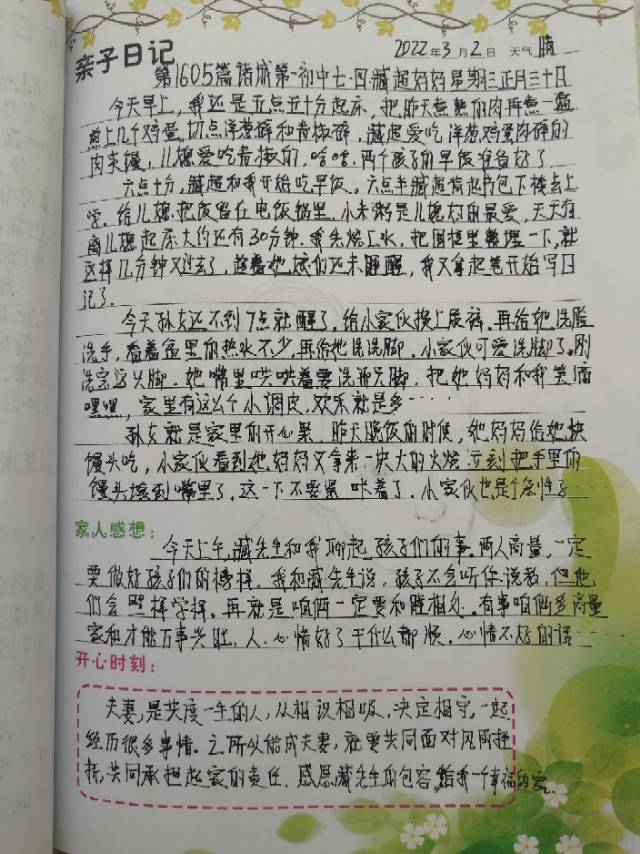 亲子日记
2022年3月2日 天气 晴
第1605篇 诸城第一初中七.四.臧超妈妈 星期三 正月三十日
今天早上，我还是五点五十分起床，把昨天煮熟的肉再煮一遍
煮上几个鸡蛋，切点洋葱碎和青椒碎，臧超爱吃洋葱鸡蛋肉碎的
肉夹馍，儿媳爱吃青椒的，哈哈，两个孩子的早饭准备好了
六点十分，臧超和我开始吃早饭，六点半臧超背起书包下楼去上
学。给儿媳把饭留在电饭锅里，小米粥是儿媳妇的最爱，天天有
离儿媳起床大约还有30分钟，我先烧上水，把厨房里整理一下，就
这样几分钟又过去了，趁着她娘们还未睡醒，我又拿起笔开始写日
记了。
今天孙女还不到7点就醒了，给小家伙换上尿裤，再给她洗脸
洗手，看着盆里的热水不少，再给她洗洗脚，小家伙可爱洗脚了。刚
洗完这只脚，她嘴里哄哄着要洗那只脚，把她妈妈和我笑的
嘿嘿，家里有这么个小调皮，欢乐就是多……
孙女就是家里的开心果，昨天晚饭的时候，她妈妈给她块
馒头吃，小家伙看到她妈妈又拿来一块大的火烧立刻把手里的
馒头塞到嘴里了，这一下不要紧，咔着了，小家伙也是个急性子……
家人感想：
今天上午，臧先生和我聊起孩子们的事，两人商量，一定
要做好孩子们的榜样，我和臧先生说，孩子不会听你说教，但他
们会照样学样，再就是咱俩一定要和睦相处，有事咱俩多商量
家和才能万事兴旺，人心情好了干什么都顺，心情不好的话……
开心时刻：
夫妻，是共度一生的人，从相识相吸，决定相守，一起
经历很多事情。之所以能成夫妻，就要共同面对风雨挫
折，共同承担起家的责任，感恩臧先生的包容，给我一个幸福的家。